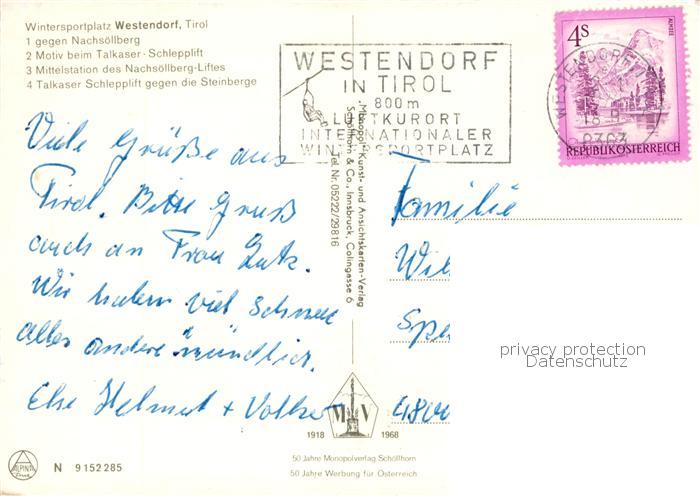 Wintersportplatz Westendorf, Tirol
1 gegen Nachsöllberg
2 Motiv beim Talkaser-Schlepplift
3 Mittelstation des Nachsöllberg-Liftes
4 Talkaser Schlepplift gegen die Steinberge
WESTENDORF
IN TIROL
800m
LUFTKURORT
INTERNATIONALER
WINTERSPORTPLATZ
4S
ALMSEE
REPUBLIK ÖSTERREICH
WESTENDORF
6363
Viele Grüße aus
Tirol. Bitte Gruß
auch an Frau Lutz.
Wir haben viel Schnee
alles andere mündlich.
Else Helmut + Volker
„Monopol"-Kunst- und Ansichtskarten-Verlag
Schöllhorn & Co., Innsbruck, Colingasse 6
Tel. Nr. 05222/29816
Familie
Wil
Spe
480
privacy protection
Datenschutz
M V
1918 1968
50 Jahre Monopolverlag Schöllhorn
50 Jahre Werbung für Österreich
ALPINA
N 9152285